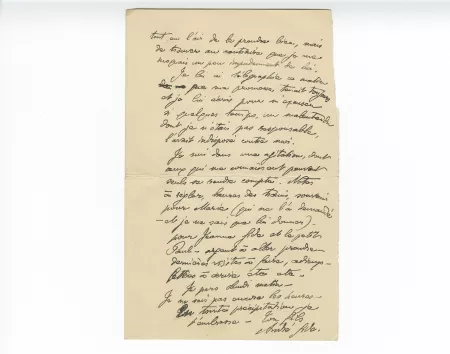 tout en l'air de le prendre bien, mais
de trouver au contraire que je me
moquais un peu
Je lui ai télégraphié ce matin
que ma promesse tenait toujours
et je lui écris pour m'excuser
a quelques temps, un malentendu
dont je n'étais pas responsable,
l'avait indisposé contre moi.
Je suis dans une agitation, dont
ceux qui me connaissent peuvent
seuls se rendre compte. Notes
à régler, heures des trains, souvenir
pour Marie (qui me l'a demandé
et je ne sais que lui donner)
pour Jeanne Gide et la petite
Paule - argent à aller prendre
dernières visites à faire,
à écrire etc etc -
Je pars lundi matin -
Je ne sais pas encore les heures -
En toute précipitation je
t'embrasse - Ton fils
André Gide.